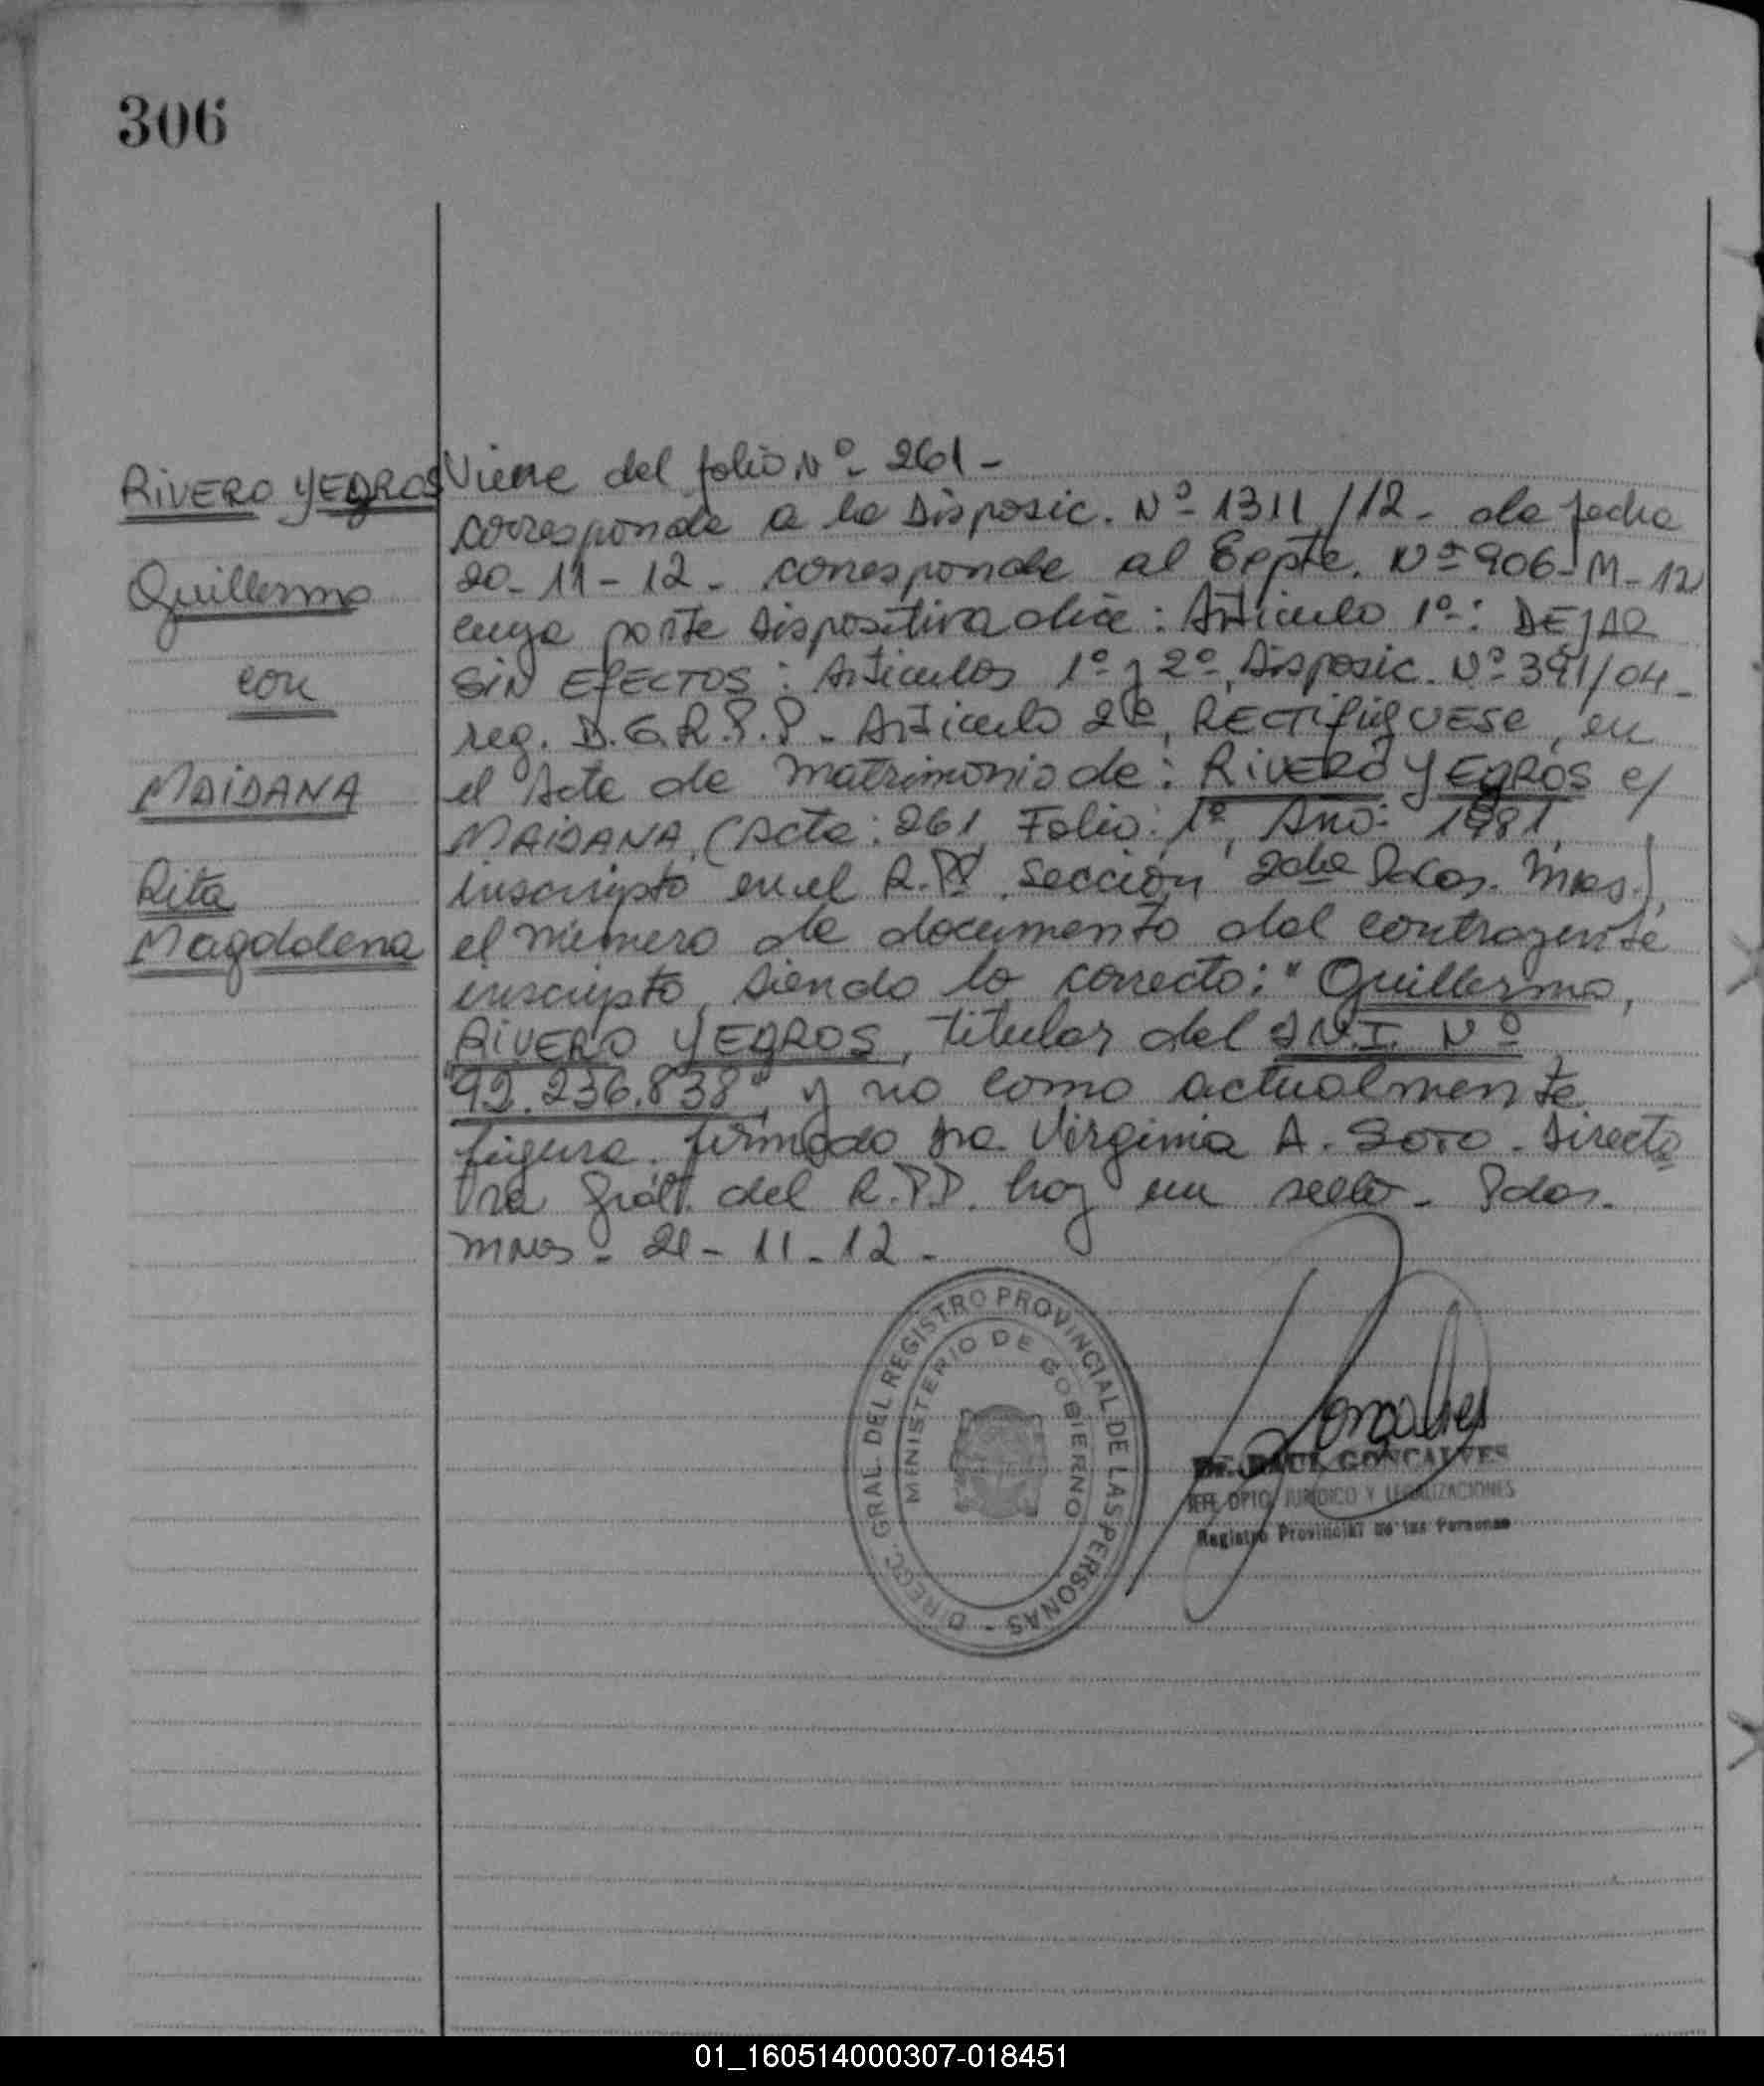 306
RIVERO YEGROS
Guillermo
con
MAIDANA
Rita
Magdalena
Viene del folio Nº 261 -
corresponde a la Disposic. Nº 1311/12 - de fecha
20-11-12 - corresponde al Expte. Nº 906-M-12
cuya parte dispositiva dice: Articulo 1º: DEJAR
SIN EFECTOS: Articulos 1º y 2º, Disposic. Nº 391/04 -
reg. D.G.R.P.P - Articulo 2º, RECTIFIQUESE, en
el Acta de matrimonio de: RIVERO YEGROS c/
MAIDANA, (Acta: 261, Folio: 1º, Año: 1981,
inscripto en el R.PP. Sección 2da Pdas. Mnes.),
el número de documento del contrayente
inscripto, siendo lo correcto: "Guillermo,
RIVERO YEGROS, titular del D.N.I. Nº
"92.236.838", y no como actualmente
figura. firmado Dra. Virginia A. SOTO. Directo
ra Gral. del R.PP. hay un sello - Pdas.
Mnes - 21-11-12 -
DIRECC. GRAL. DEL REGISTRO PROVINCIAL DE LAS PERSONAS -
MINISTERIO DE GOBIERNO
Goncalves
Dr. RAUL GONCALVES
JEFE DPTO JURIDICO Y LEGALIZACIONES
Registro Provincial de las Personas
01_160514000307-018451